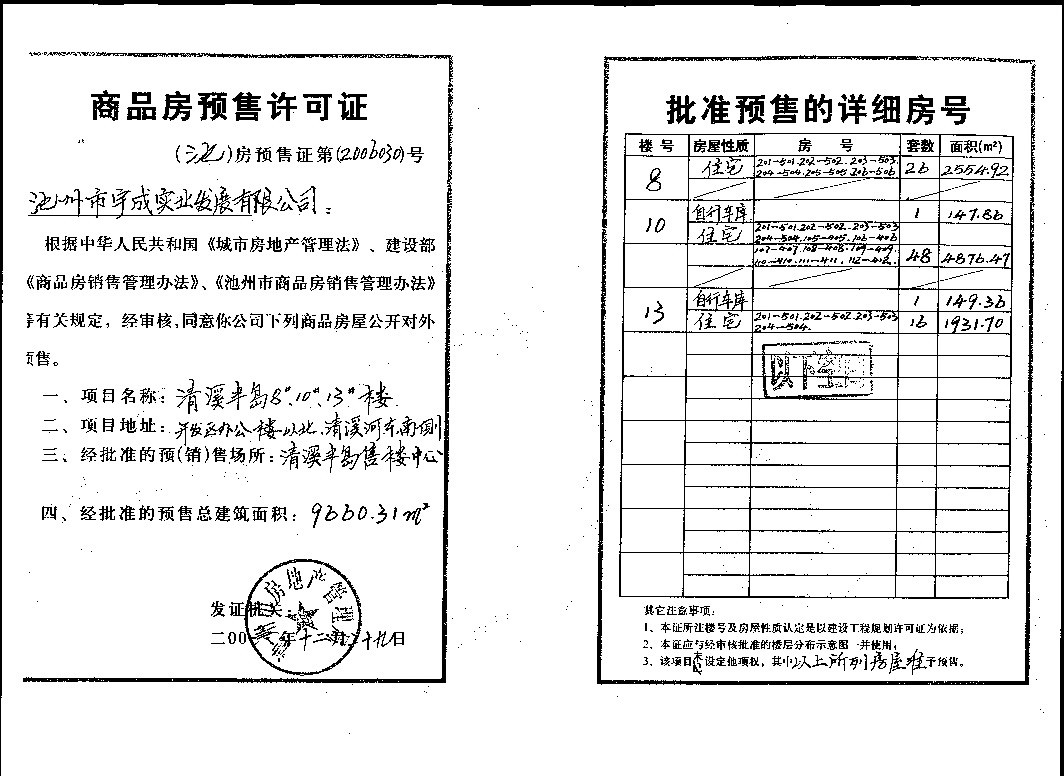 商品房预售许可证
(池)房预售证第(2006030)号
池州市宇成实业发展有限公司:
根据中华人民共和国《城市房地产管理法》、建设部
《商品房销售管理办法》、《池州市商品房销售管理办法》
等有关规定，经审核,同意你公司下列商品房屋公开对外
预售。
一、项目名称: 清溪半岛8#、10#、13#楼
二、项目地址: 开发区办公楼以北,清溪河东南侧
三、经批准的预(销)售场所: 清溪半岛售楼中心
四、经批准的预售总建筑面积: 9660.31m²
发证机关:
房地产管理
二00 年十二月二十九日
批准预售的详细房号
楼号 房屋性质 房号 套数 面积(m²)
8 住宅 201-501.202-502.203-503. 26 2554.92
204-504.205-505.206-506
10 自行车库 1 147.86
住宅 201-501.202-502.203-503
204-504.105-405.106-406
107-407.108-408.109-409. 48 4876.47
110-410.111-411.112-412.
13 自行车库 1 149.36
住宅 201-501.202-502.203-503 16 1931.70
204-504.
以下空白
其它注意事项:
1、本证所注楼号及房屋性质认定是以建设工程规划许可证为依据;
2、本证应与经审核批准的楼层分布示意图一并使用;
3、该项目未设定他项权，其中以上所列房屋准予预售。